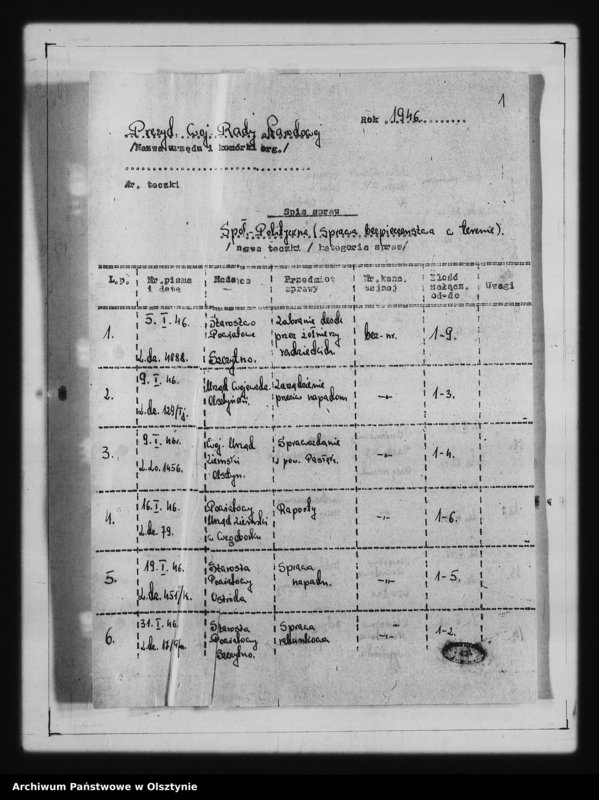 1
Rok 1946
Prezyd. Woj. Rady Narodowej
/Nazwa urzędu i komórki org./
Nr. teczki
Spis spraw
Społ-Polityczne (sprawa bezpieczeństwa w terenie).
/nazwa teczki / kategoria spraw/
L.p. Nr.pisma i data Nadawca Przedmiot sprawy Nr.kanc. tajnej Ilość załącz. od-do Uwagi
1. 5. I. 46. L.dz. 4888. Starostwo Powiatowe Szczytno. Zabranie desek przez żołnierzy radzieckich. bez-nr. 1-9.
2. 9. I. 46. L.dz. 129/Tj. Urząd Wojewódz. Olsztyński. Zarządzenie przeciw napadom -"- 1-3.
3. 9. I. 46r. L.Zo.1456. Woj. Urząd Ziemski Olsztyn. Sprawozdanie z pow. Pasłęk. -"- 1-4.
4. 16. I. 46. L.dz. 79. Powiatowy Urząd Ziemski w Węgoborku Raporty -"- 1-6.
5. 19. I. 46. L.dz. 451/4. Starosta Powiatowy Ostróda Sprawa napadu. -"- 1-5.
6. 31. I. 46. L.dz. Starosta Powiatowy Szczytno. Sprawa rabunkowa -"- 1-2.
Archiwum Państwowe w Olsztynie